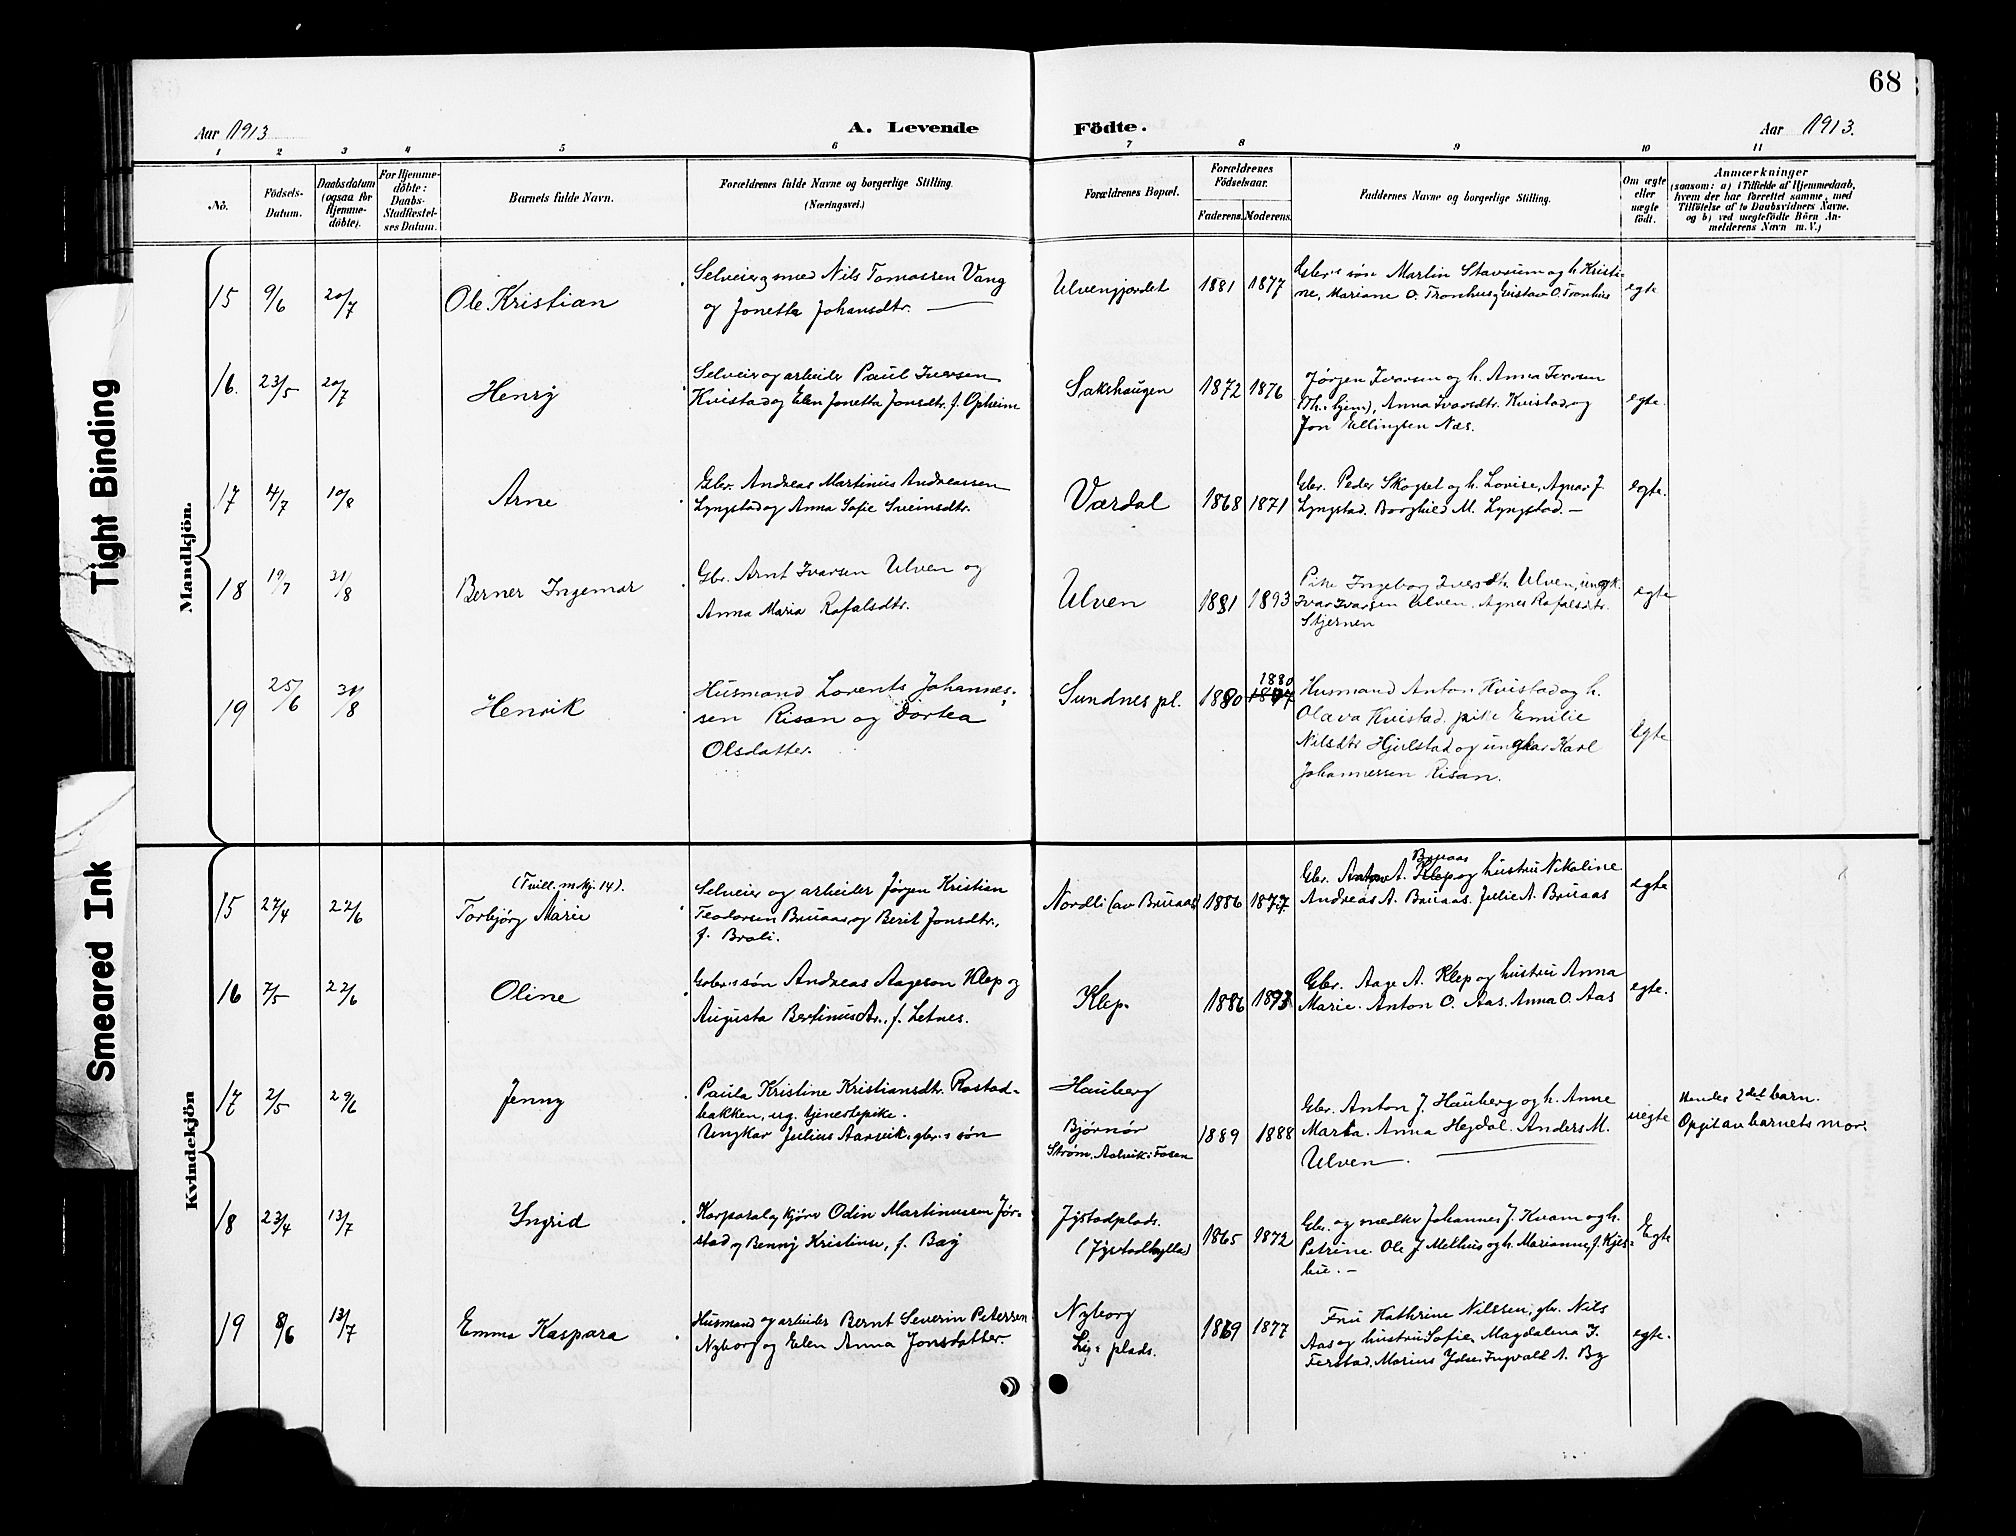 68
Aar 1913
A. Levende Födte.
Aar 1913.
1 2 3 4 5 6 7 8 9 10 11
No.
Födsels-Datum.
Daabsdatum (ogsaa for Hjemme-döbte).
For Hjemme-döbte: Daabs-Stadfæstel-ses Datum.
Barnets fulde Navn.
Forældrenes fulde Navne og borgerlige Stilling.
(Næringsvei.)
Forældrenes Bopæl.
Forældrenes Födselsaar.
Faderens. Moderens.
Faddernes Navne og borgerlige Stilling.
Om ægte eller uægte födt.
Anmærkninger
(saasom: a) i Tilfælde af Hjemmedaab,
hvem der har forrettet samme, med
Tilföielse af to Daabsvidners Navne.
og b) ved uægtefödte Börn An-
melderens Navn m. V.)
Mandkjön.
15 9/6 20/7 Ole Kristian
Selveier, smed Nils Tomassen Vang
og Jonetta Johansdtr.
Ulvengjerdet 1881 1877
Gbr.s søn Martin Stavrum og h. Kristi-
ne, Mariane O. Tronhus, Gustav O. Tronhus
egte
16. 23/5 20/7 Henry
Selveier og arbeider Paul Iversen
Kvistad og Elen Jonetta Jonsdtr. f. Opheim
Sakshaugen 1872 1876
Jørgen Ivarsen og h. Anna Ivarsen
Anna Ivarsdtr. Kvistad og
Jon Ellingsen Næs.
egte.
17 4/7 10/8 Arne
Gbr. Andreas Martinus Andreassen
Lyngstad og Anna Sofie Sveinsdtr.
Værdal 1868 1871
Gbr. Peder Skogset og h. Lovise, Agnar J.
Lyngstad. Borghild M. Lyngstad. —
egte.
18 19/7 31/8 Berner Ingemar
Gbr. Arnt Ivarsen Ulven og
Anna Maria Rafalsdtr.
Ulven 1881 1893
Pike Ingeborg Iversdtr. Ulven, ungk.
Ivar Ivarsen Ulven. Agnes Rafalsdtr.
Stjernen
egte
19 25/6 31/8 Henrik
Husmand Lorents Johannes-
sen Risan og Dortea
Olsdatter.
Sundnes pl. 1880 1880
Husmand Anton Kvistad og h.
Olava Kvistad. pike Emilie
Nilsdtr Hjulstad og ungkar Karl
Johannessen Risan.
Egte
Kvindekjön
15 27/4 22/6 (Tvill. m kj. 14).
Torbjørg Marie
Selveier og arbeider Jørgen Kristian
Teodorsen Bruaas, og Berit Jonsdtr.,
f. Brali.
Nordli (av Bruaas) 1886 1877
Bruaas
Gbr. Anton A. Klep og hustru Nikoline
Andreas A. Bruaas. Julie A. Bruaas
egte
16 7/5 22/6 Oline
Gbr.s søn Andreas Aageson Klep og
Augusta Bertinusdtr., f. Letnes.
Klep. 1886 1893
Gbr. Aage A. Klep og hustru Anna
Marie. Anton O. Aas. Anna O. Aas
egte.
17 2/5 29/6 Jenny
Paula Kristine Kristiansdtr. Rostad-
bakken, ug. tjenestepike.
Ungkar Julius Aarvik, gbr.s søn
Hauberg
Bjørnør
1889 1888
Gbr. Anton J. Hauberg og h. Anne
Marta. Anna Hegdal. Anders M.
Ulven.
uegte
Hendes 2det barn.
Opgit av barnets mor.
18 23/4 13/7 Yngrid
Korporal og kjører Odin Martinussen Jør-
stad og Benny Kristine, f. Bag
Jystadplads.
(Jystadhylla)
1865 1872
Gbr. og mædler Johannes J. Kvam og h.
Petrine. Ole J Melhus og h. Marianne, f. Kjes-
bu. —
Egte
19 8/6 13/7 Emma Kaspara
Husmand og arbeider Bernt Severin Petersen
Nyborg og Elen Anna Jonsdatter.
Nyborg
plads.
1869 1877
Fru Kathrine Nilssen, gbr. Nils
Aas og hustru Sofie, Magdalena J.
Ferstad, Marius Ydse, Ingvald A. By
egte.
Tight Binding
Smeared Ink